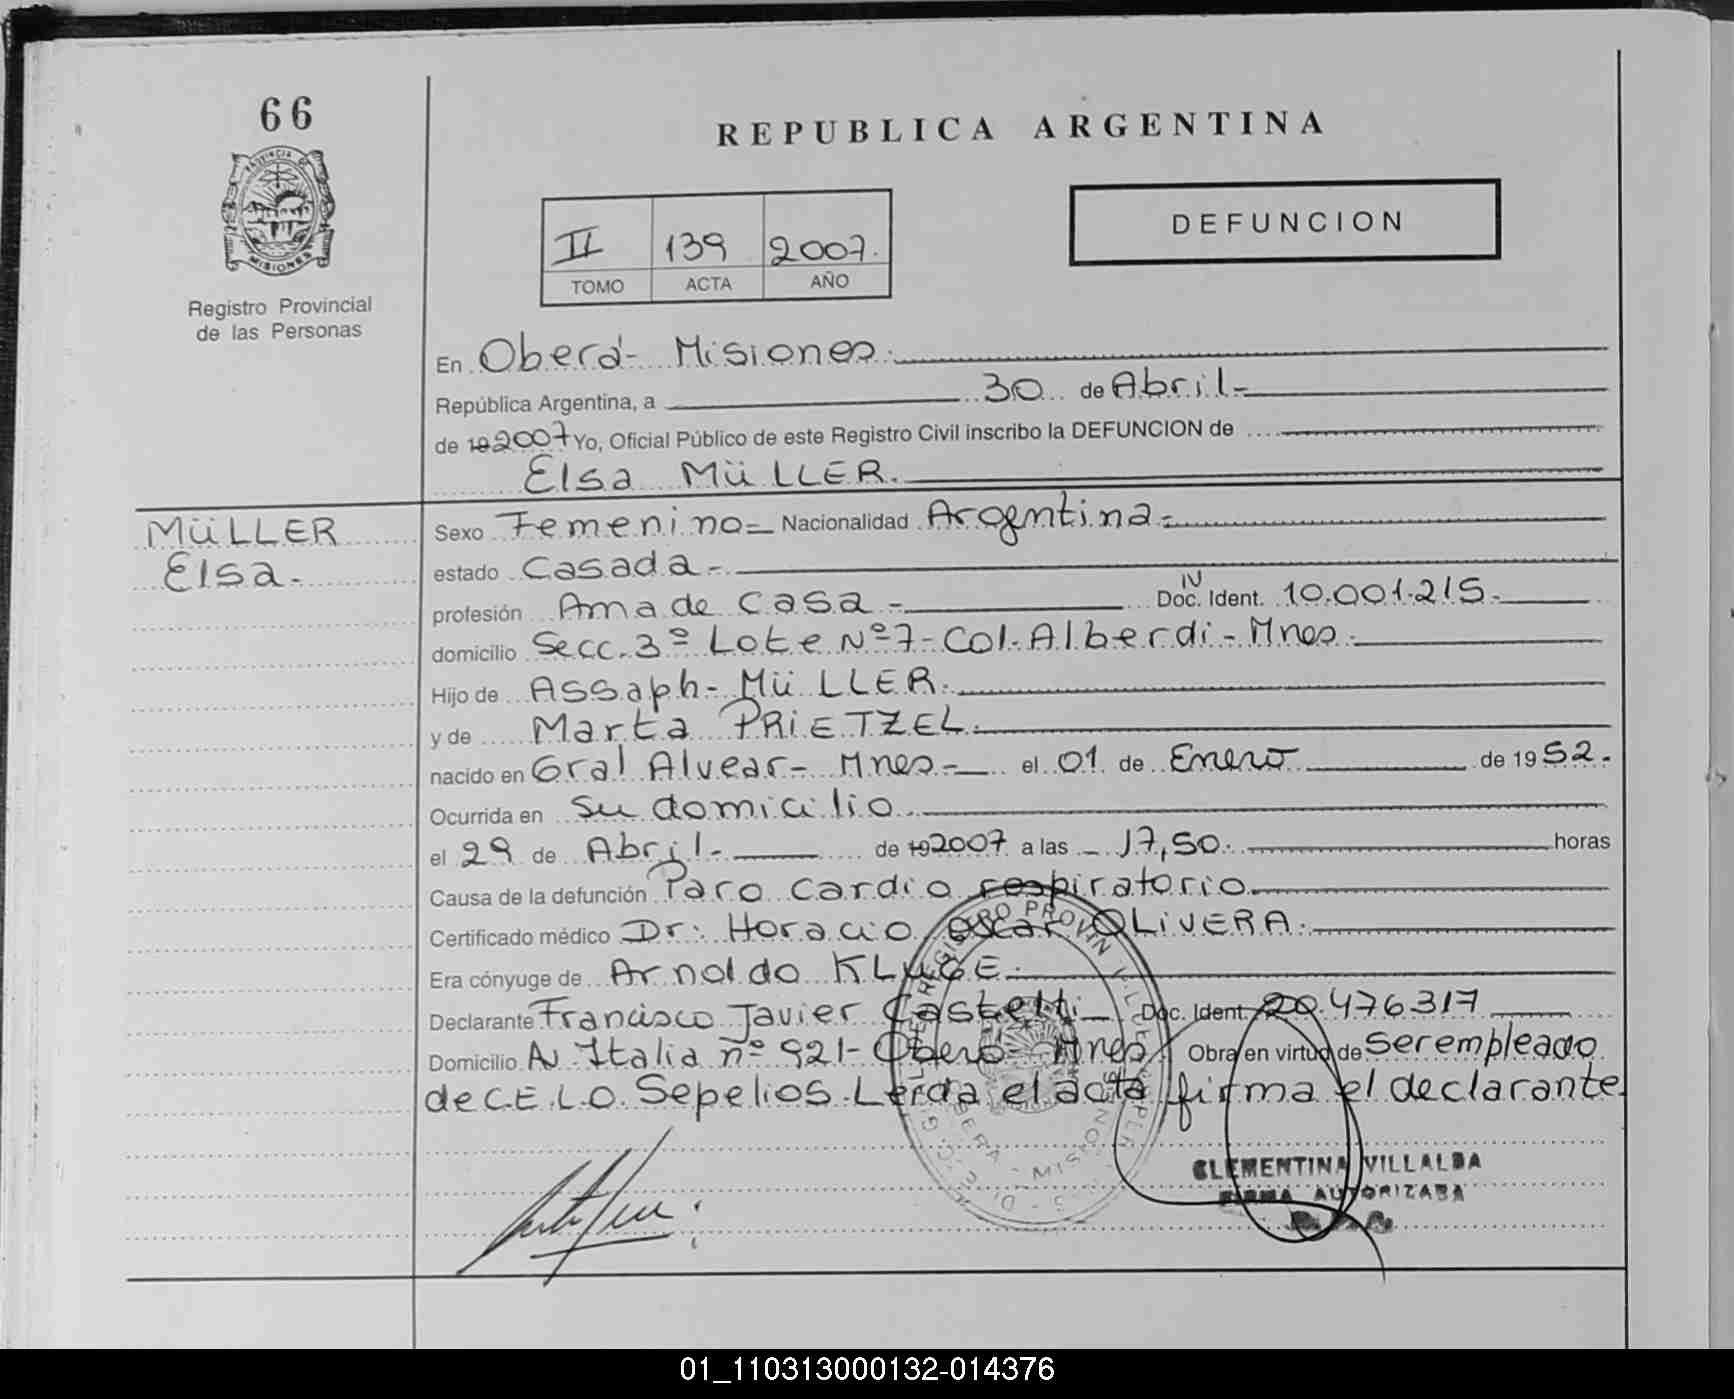 66
REPUBLICA ARGENTINA
PROVINCIA DE
MISIONES
Registro Provincial
de las Personas
II 139 2007.
TOMO ACTA AÑO
DEFUNCION
En Oberá- Misiones.
República Argentina, a 30 de Abril-
de 19 2007 Yo, Oficial Público de este Registro Civil inscribo la DEFUNCION de
Elsa MüLLER.
MüLLER
Elsa.
Sexo Femenino- Nacionalidad Argentina-
estado Casada-
profesión Ama de casa- Doc. Ident. 10.001.215-
domicilio Secc. 3º Lote Nº 7- Col. Alberdi- Mnes.
Hijo de Assaph- MüLLER.
y de Marta PRiETZEL.
nacido en Gral Alvear- Mnes- el 01 de Enero de 1952.
Ocurrida en su domicilio.
el 29 de Abril- de 19 2007 a las 17,50. horas
Causa de la defunción Paro cardio respiratorio.
Certificado médico Dr: Horacio oscar OLiVERA.
Era cónyuge de Arnoldo KLUGE.
Declarante Francisco Javier Castelli- Doc. Ident. 20.476317
Domicilio Av. Italia nº 921- Oberá- Mnes Obra en virtud de Ser empleado
de C.E.L.O. Sepelios. Leída el acta firma el declarante
CLEMENTINA VILLALBA
FIRMA AUTORIZADA
01_110313000132-014376